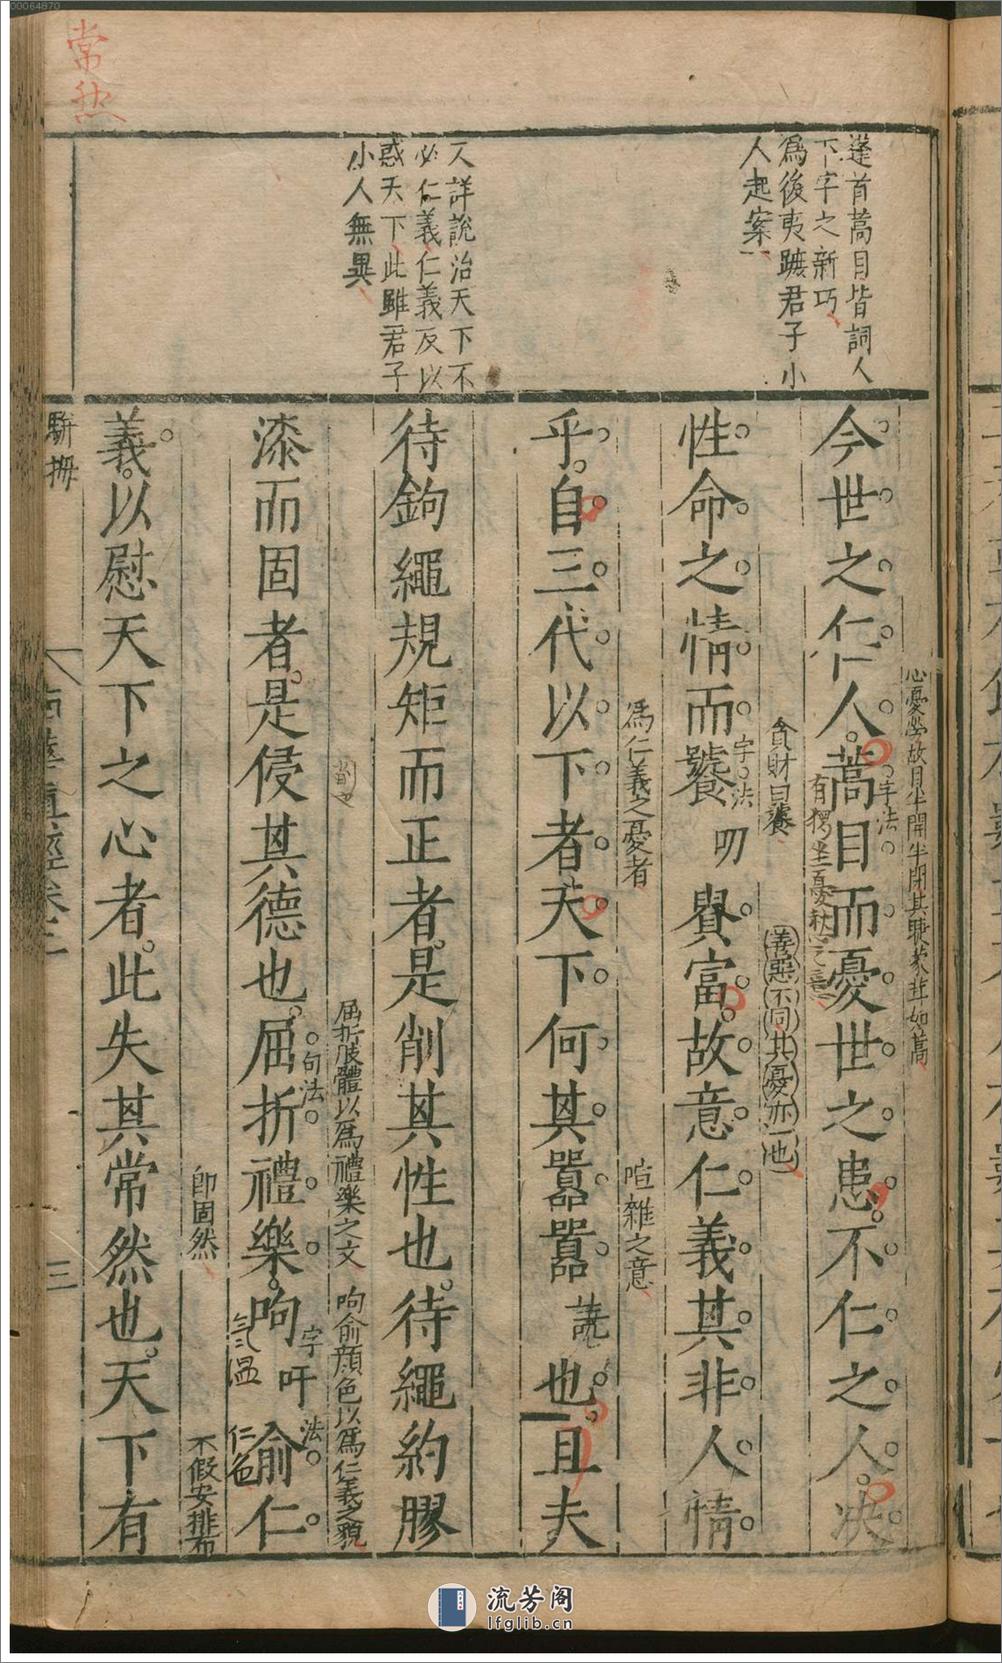 00064870
常然
蓬首蒿目皆詞人
下字之新巧
爲後夷蹠君子小
人起案
又詳說治天下不
必仁義仁義反以
惑天下此雖君子
小人無異
心憂勞故目半開半閉其睫蒙茸如蒿
今世之仁人蒿目而憂世之患不仁之人决
字法
有愕坐憂愁之意
貪財曰饕
善惡不同其憂亦一也
性命之情而饕叨貴富故意仁義其非人情
字法
爲仁義之憂者
喧雜之意
乎自三代以下者天下何其囂囂譊也且夫
待鉤繩規矩而正者是削其性也待繩約膠
屈折肢體以爲禮樂之文
呴俞顏色以爲仁義之貌
漆而固者是侵其德也屈折禮樂呴吁俞仁
句法
字法
氣溫
仁色
卽固然
不假安排布
義以慰天下之心者此失其常然也天下有
駢拇
南華真經卷三
三
流芳阁
lfglib.cn